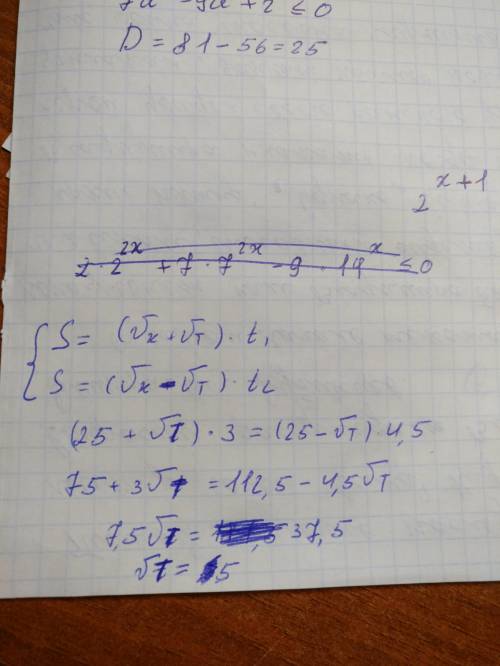 7u² - 9u + 2 ≤ 0
D = 81 - 56 = 25
2^{x+1}
2 · 2^{2x} + 7 · 7^{2x} - 9 · 14^{x} ≤ 0
{ S = (Vx + Vт) · t₁
S = (Vx - Vт) · t₂
(25 + Vт) · 3 = (25 - Vт) 4,5
75 + 3Vт = 112,5 - 4,5Vт
7,5Vт = 37,5
Vт = 5